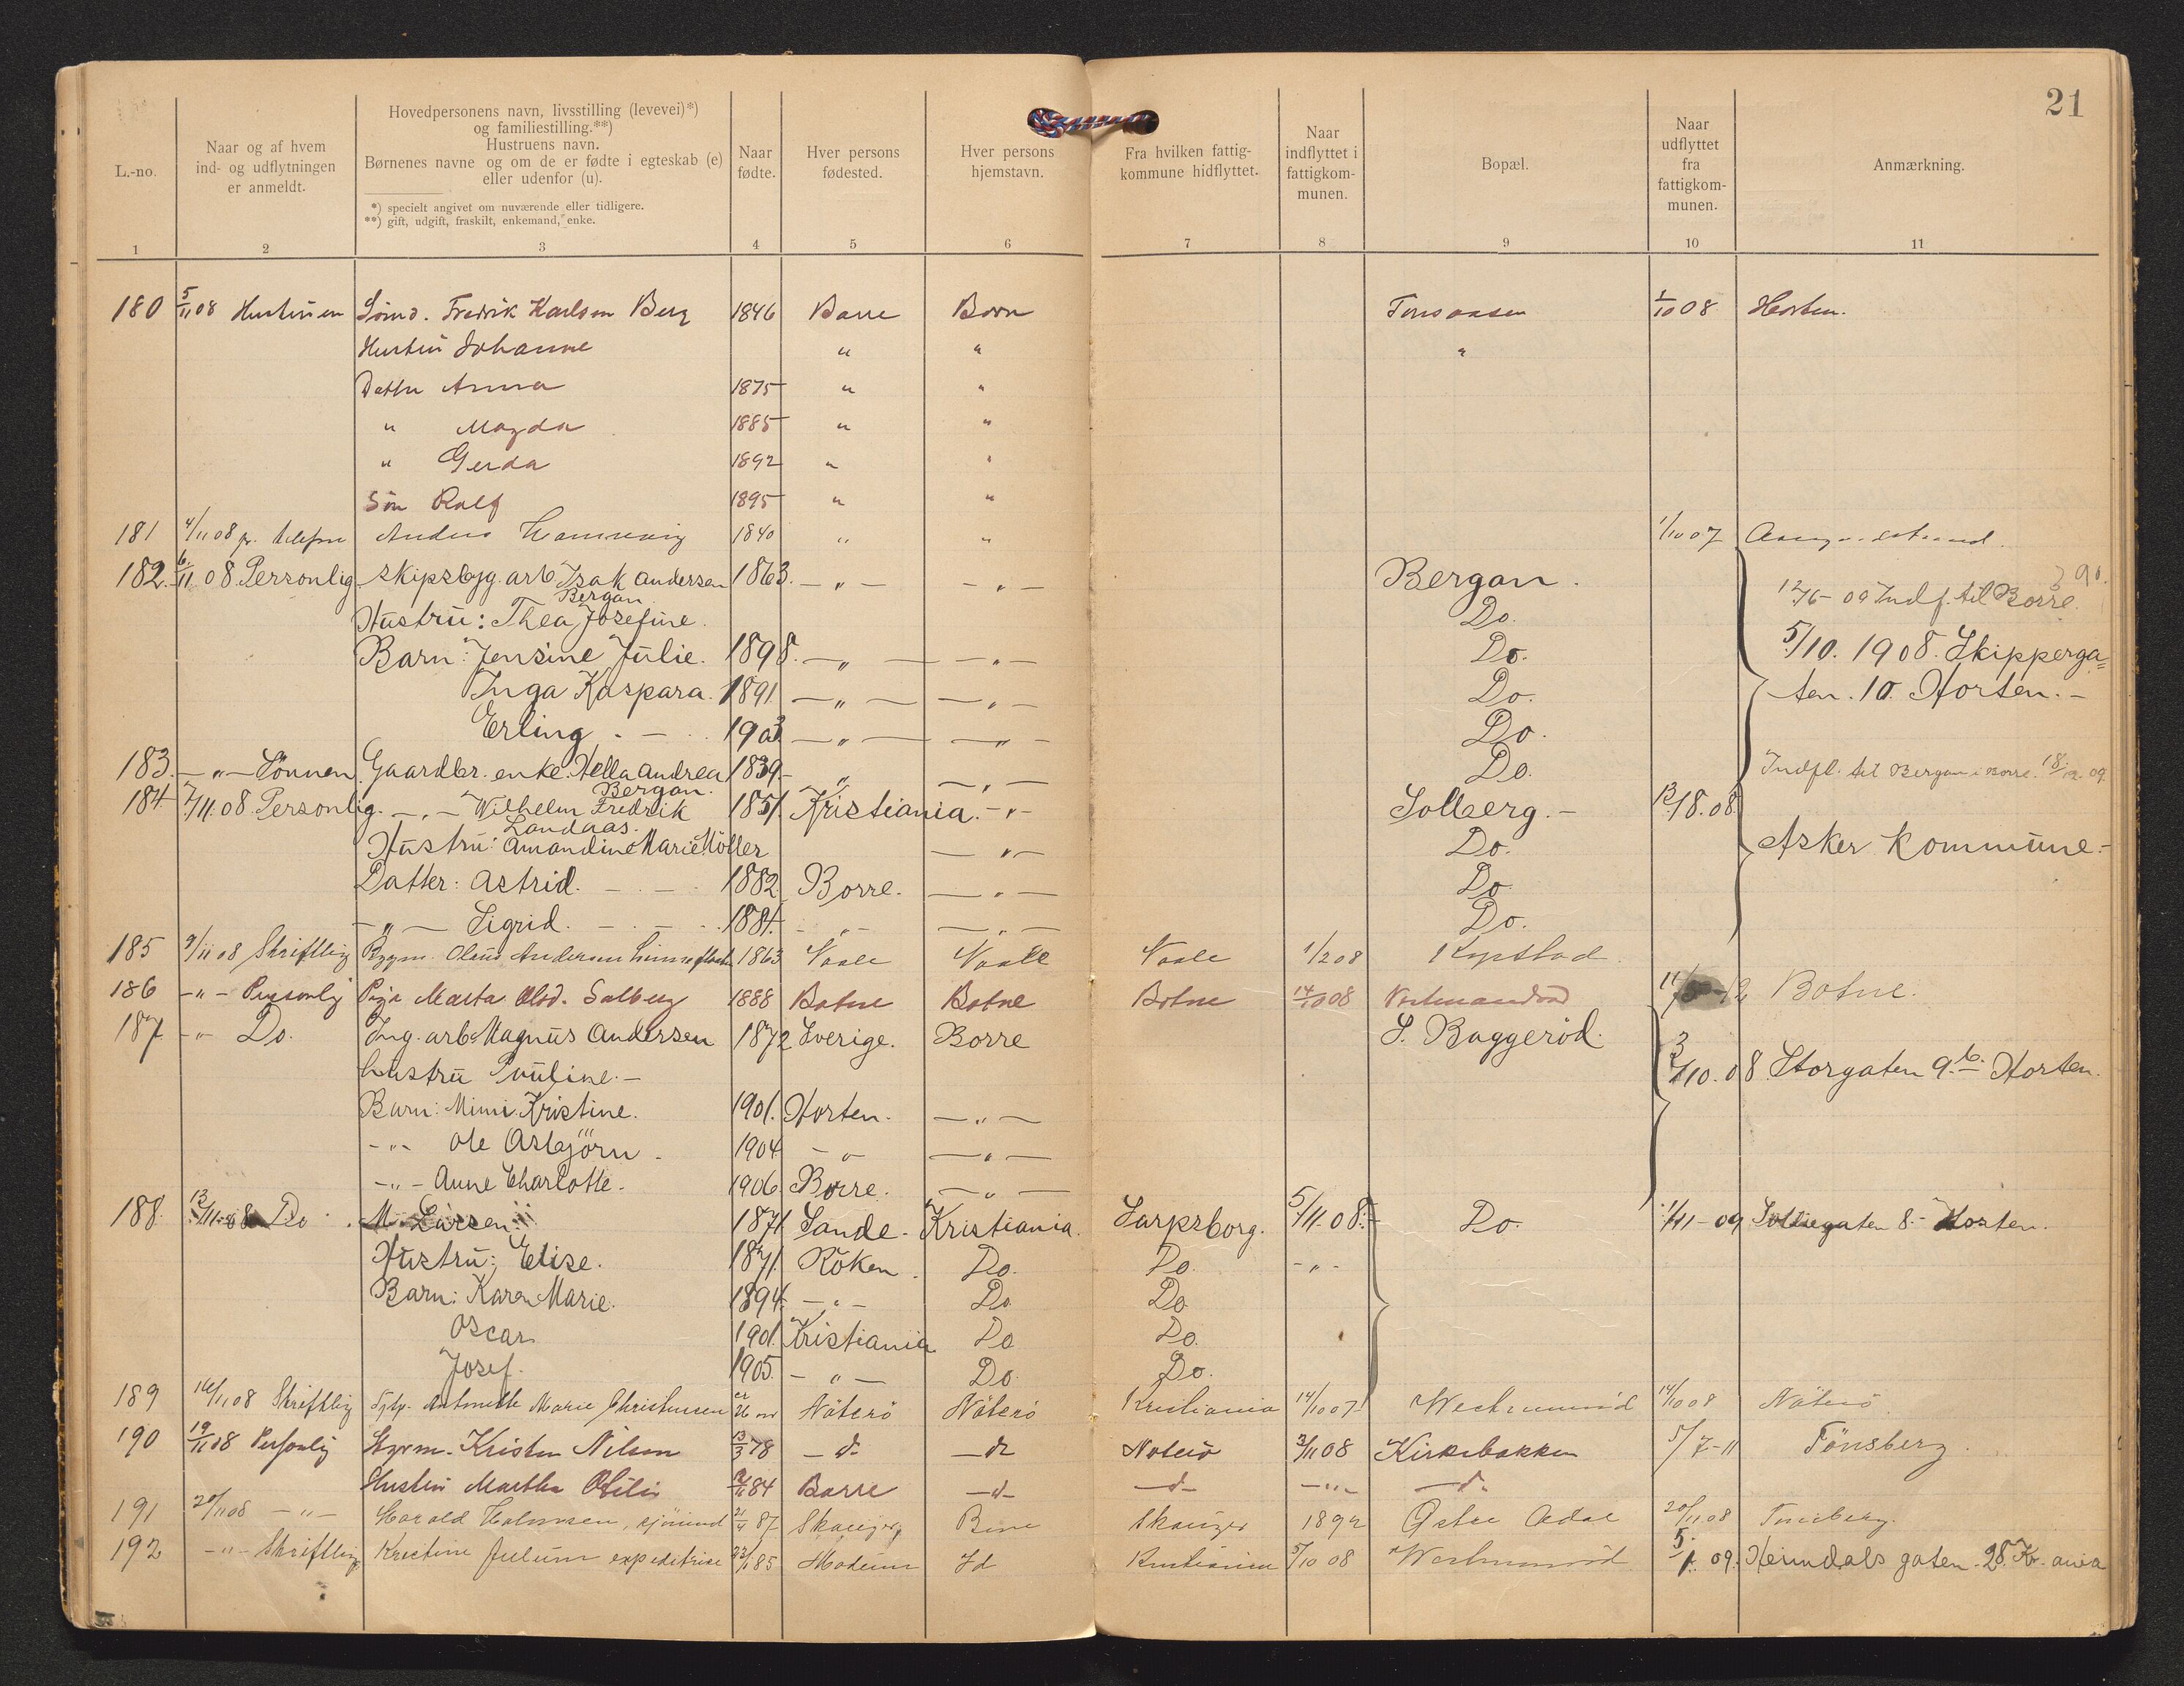 21
L.-no. Naar og af hvem ind- og udflytningen er anmeldt. Hovedpersonens navn, livsstilling (levevei)*) og familiestilling.**) Hustruens navn. Børnenes navne og om de er fødte i egteskab (e) eller udenfor (u). Naar fødte. Hver persons fødested. Hver persons hjemstavn. Fra hvilken fattigkommune hidflyttet. Naar indflyttet i fattigkommunen. Bopæl. Naar udflyttet fra fattigkommunen. Anmærkning.
*) specielt angivet om nuværende eller tidligere.
**) gift, udgift, fraskilt, enkemand, enke.
1 2 3 4 5 6 7 8 9 10 11
180 5/11 08 Hustruen Sömd. Fredrik Karlsen Berg 1846 Borre Borre 1/10 08 Horten.
Hustru Johanne " " "
Datter Anna 1875 " "
" Magda 1885 " "
" Gerda 1892 " "
Sön Rolf 1895 " "
181 4/11 08 pr. telefon Anders 1840 " " 1/10 07
182. 6/11.08. Personlig. Skipsbyg. arb. Isak Andersen 1863. — " — — " — Bergan. 12/5-09 Indf. til Borre.
Bergan
Hustru: Thea Josefine. Do.
Barn: Jensine Julie. 1898. — " — — " — Do. 5/10. 1908. Skipperga=
Inga Kaspara. 1891. — " — — " — Do. ten. 10. Horten. -
Erling. - 1903 — " — — " — Do.
183. — " — Sönnen. Gaardbr. enke. Hella Andrea 1839. " — " — Do. Indfl. til Bergan i Borre. 18/12 09
Bergan.
184 7/11.08. Personlig. — " — Wilhelm Fredrik 1851. Kristiania. — " — Solberg. - 13/8.08.
Landaas.
Hustru: Amandine Marie Möller — " — Do. Asker kommune. -
Datter: Astrid. 1882 Borre. — " — Do
— " — Sigrid. 1884. — " — — " — Do.
185 9/11 08 Skriftlig Olaus Andersen 1863 Vaale Vaale Vaale 1/2 08 Kopstad
186 — " — Personlig Pige Marta Solberg 1888 Botne Botne Botne 14/10 08 Botne.
187 — " Do. Ing. arb. Magnus Andersen 1872 Sverige. Borre S. Baggeröd. 3/10.08 Storgaten 9.b. Horten.
hustru Pauline. -
Barn: Mimi Kristine. 1901. Horten. — " —
— " — Ole Asbjörn. 1904 — " — — " —
— " — Anne Charlotte. 1906 Borre. — " —
188 13/11-08 Do M. Larsen 1871. Sande. Kristiania. Sarpsborg. 5/11.08. Do. 1/11-09 8. - Horten.
Hustru: Elise. 1871. Röken. Do. Do. — " —
Barn: Karen Marie. 1894. — " — Do. Do
Oscar 1901. Kristiania Do Do.
Josef. 1905. — " — Do. Do.
189 14/11 08 Skriftlig Antonette Marie Christensen Nöterö Nöterö Kristiania 14/10 07 14/10 08 Nöterö
190 19/11 08 Personlig Styrm. Kristen Nilsen 13/3 78 — d — — d — Noterö 3/11 08 Kirkebakken 5/7-11 Tönsberg.
Hustru Martha 84 Borre — d — — d — — " — — d —
191 20/11 08 — " — Harald Halvorsen, sjömand 21/4 87 Skauger Borre Skauger 1892 Östre Adal 20/11 08 Tönsberg.
192 — " — Skriftlig Kristine Julum expeditrice 85 Modum Id Kristiania 5/10 08 5/1. 09. Heimdals gaten. 28. Kr. ania